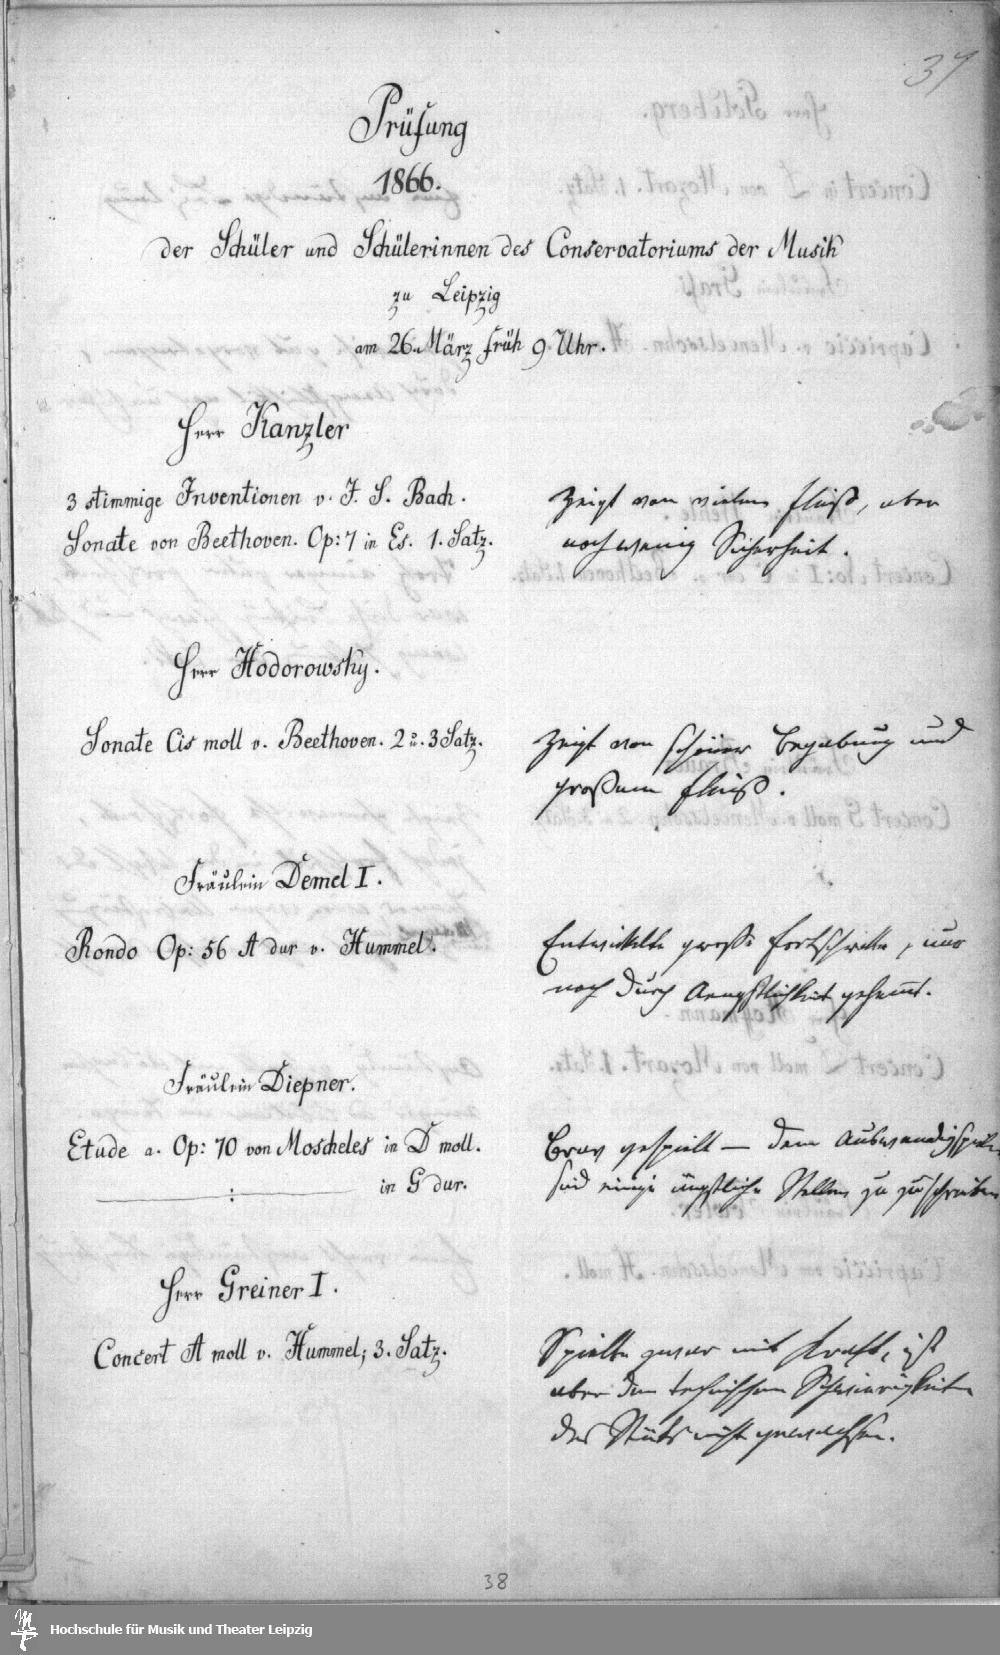 37
Prüfung
1866.
der Schüler und Schülerinnen des Conservatoriums der Musik
zu Leipzig
am 26. März früh 9 Uhr.
Herr Kanzler
3 stimmige Inventionen v. J. S. Bach.
Sonate von Beethoven. Op: 7 in Es. 1. Satz.
Zeigt von vielem Fleiß, aber
noch wenig Sicherheit.
Herr Hodorowsky.
Sonate Cis moll v. Beethoven. 2 u. 3 Satz.
Zeigt von schöner Begabung und
großem Fleiß.
Fräulein Demel I.
Rondo Op: 56 A dur v. Hummel.
Entwickelte große Fortschritte, nur
noch durch Aengstlichkeit gehemmt.
Fräulein Diepner.
Etude a. Op: 70 von Moscheles in D moll.
in G dur.
Brav gespielt — dem Auswendigspielen
sind einige ängstliche Stellen zu zuschreiben
Herr Greiner I.
Concert A moll v. Hummel; 3. Satz.
Spielte zwar mit Kraft, ist
aber den technischen Schwierigkeiten
des Stücks nicht gewachsen.
38
Hochschule für Musik und Theater Leipzig